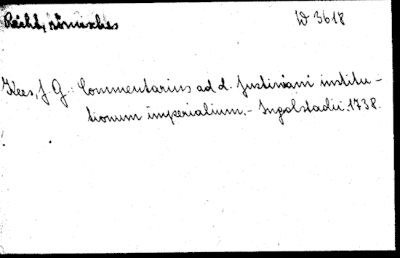 Recht, römisches W 3618
Kees, J. G.: Commentarius ad d. Justiniani institu-
tionum imperialium.- Ingolstadii, 1738.